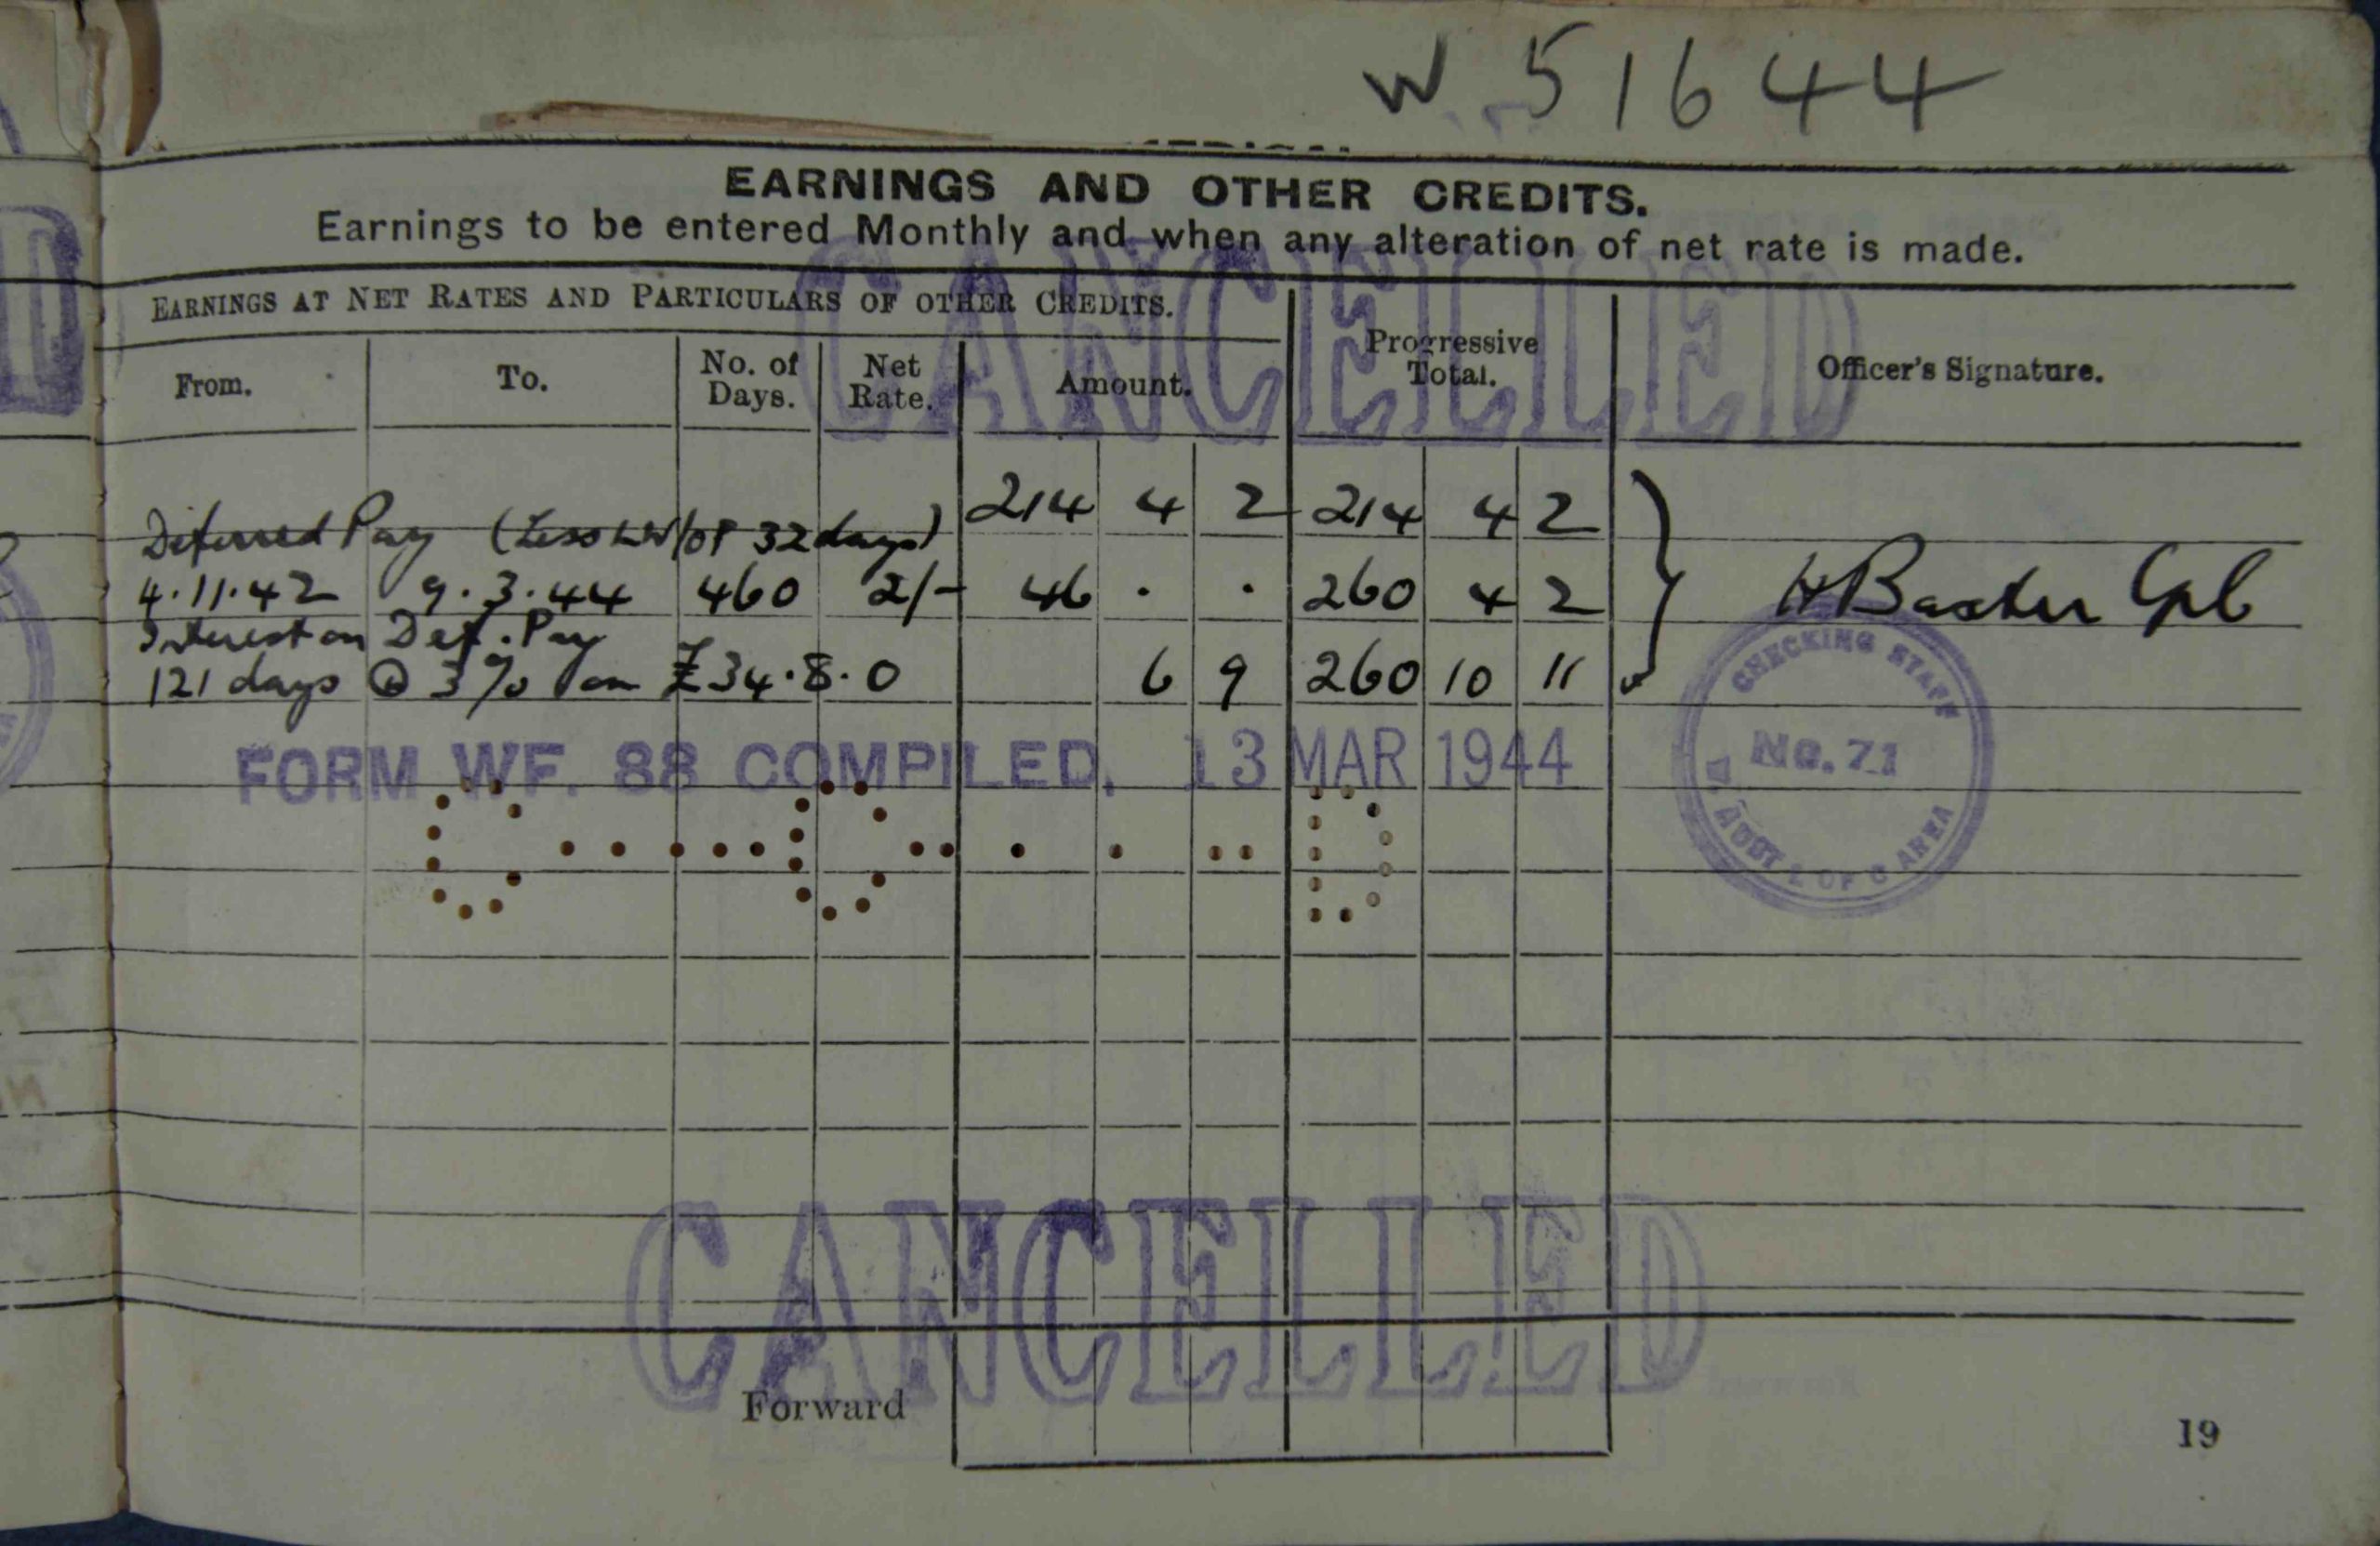 W 51644
EARNINGS AND OTHER CREDITS.
Earnings to be entered Monthly and when any alteration of net rate is made.
EARNINGS AT NET RATES AND PARTICULARS OF OTHER CREDITS.
From. To. No. of Days. Net Rate. Amount. Progressive Total. Officer's Signature.
CANCELLED
214 4 2 214 4 2
Deferred Pay (Less LW/OP 32 days)
4.11.42 9.3.44 460 2/- 46 . . 260 4 2 H Baxter Cpl
Interest on Def. Pay
121 days @ 3% on £34.8.0 6 9 260 10 11
FORM WF. 88 COMPILED, 13 MAR 1944
CHECKING STAFF
No. 71
AUST L OF C AREA
CANCELLED
Forward
19